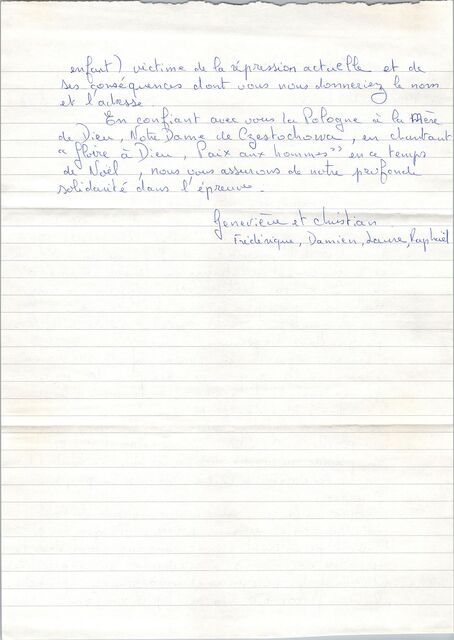 enfant) victime de la répression actuelle et de
ses conséquences dont vous nous donneriez le nom
et l'adresse
En confiant avec vous la Pologne à la Mère
de Dieu, Notre Dame de Czestochowa, en chantant
"Gloire à Dieu, Paix aux hommes" en ce temps
de Noël, nous vous assurons de notre profonde
solidarité dans l'épreuve.
Geneviève et Christian
Frédérique, Damien, Laure, Raphaël